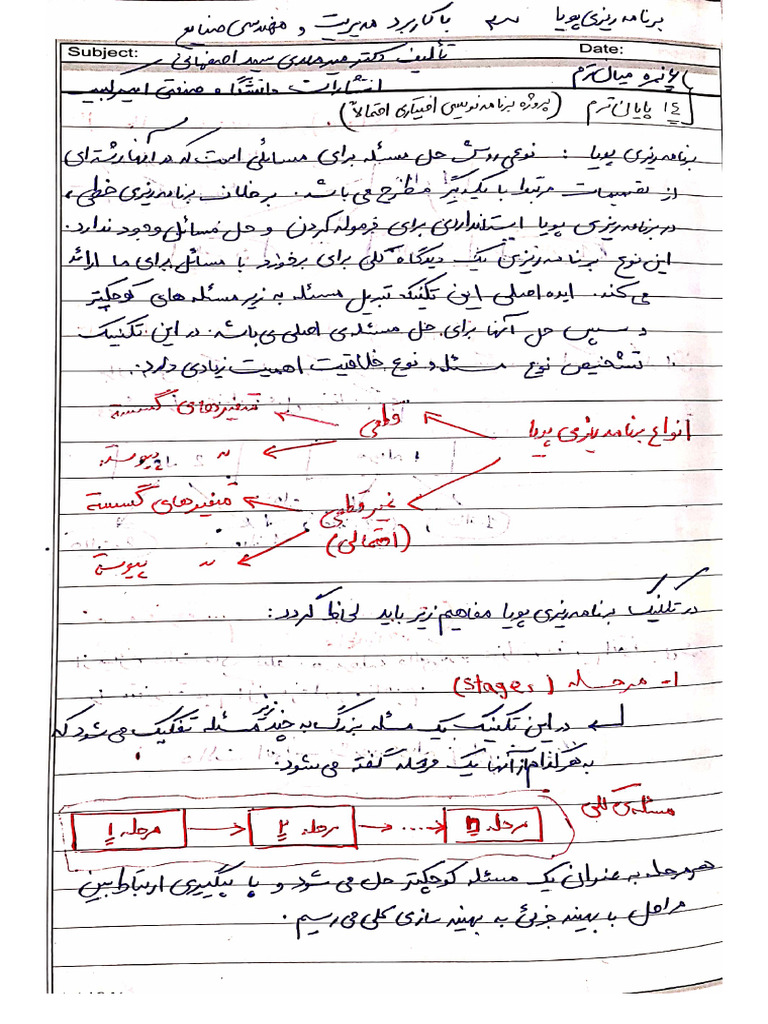 برنامه ریزی پویا با کاربرد مدیریت و مهندسی صنایع
Subject: تألیف دکتر میرمهدی سید اصفهانی Date:
انتشارات دانشگاه صنعتی امیرکبیر ۶ نمره میان ترم
۱۴ پایان ترم (پروژه برنامه نویسی اختیاری احتمالاً)
برنامه ریزی پویا : نوعی روش حل مسئله برای مسائلی است که در آنها رشته ای
از تصمیمات مرتبط با یکدیگر مطرح می باشد. برخلاف برنامه ریزی خطی ،
در برنامه ریزی پویا استانداری برای فرموله کردن و حل مسائل وجود ندارد.
این نوع برنامه ریزی یک دیدگاه کلی برای برخورد با مسائل برای ما ارائه
می کند. ایده اصلی این تکنیک تبدیل مسئله به زیر مسئله های کوچکتر
و سپس حل آنها برای حل مسئله ی اصلی می باشد. در این تکنیک
تشخیص نوع مسئله و نوع خلاقیت اهمیت زیادی دارد.
انواع برنامه ریزی پویا
قطعی
متغیرهای گسسته
" پیوسته
غیر قطعی (احتمالی)
متغیرهای گسسته
" پیوسته
در تکنیک برنامه ریزی پویا مفاهیم زیر باید لحاظ گردد:
۱- مرحله (Stages)
در این تکنیک یک مسئله بزرگ به چند زیر مسئله تفکیک می شود که
به هر کدام از آنها یک مرحله گفته می شود.
مسئله ی کلی
مرحله ۱ → مرحله ۲ → ... → مرحله n
هر مرحله به عنوان یک مسئله کوچکتر حل می شود و با پیگیری ارتباط بین
مراحل با بهینه جزئی به بهینه سازی کلی می رسیم.